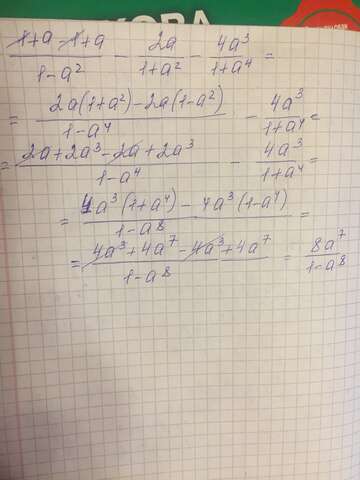 КОВА
(1+a-1+a)/(1-a²) - 2a/(1+a²) - 4a³/(1+a⁴) =
= (2a(1+a²)-2a(1-a²))/(1-a⁴) - 4a³/(1+a⁴) =
= (2a+2a³-2a+2a³)/(1-a⁴) - 4a³/(1+a⁴) =
= (4a³(1+a⁴)-4a³(1-a⁴))/(1-a⁸) =
= (4a³+4a⁷-4a³+4a⁷)/(1-a⁸) = 8a⁷/(1-a⁸)